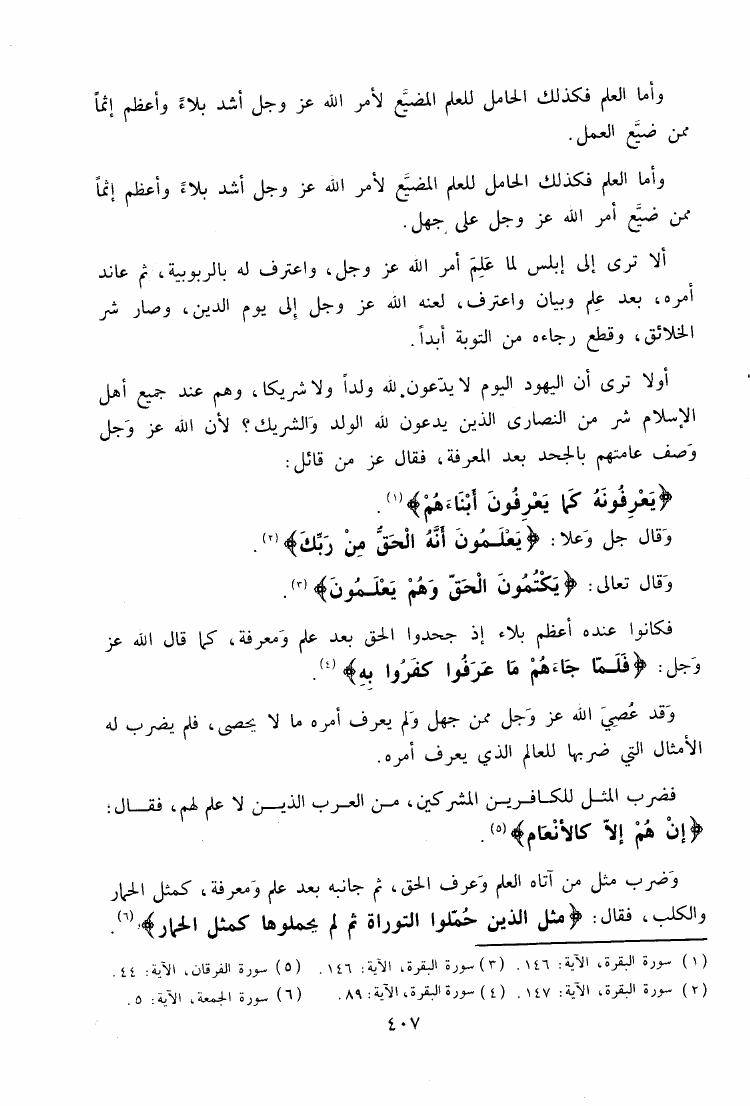 وأما العلم فكذلك الحامل للعلم المضيَّع لأمر الله عز وجل أشد بلاءً وأعظم إثماً
ممن ضيَّع العمل.
وأما العلم فكذلك الحامل للعلم المضيَّع لأمر الله عز وجل أشد بلاءً وأعظم إثماً
ممن ضيَّع أمر الله عز وجل على جهل.
ألا ترى إلى إبلس لما عَلِمَ أمر الله عز وجل، واعترف له بالربوبية، ثم عاند
أمره، بعد عِلم وبيان واعترف، لعنه الله عز وجل إلى يوم الدين، وصار شر
الخلائق، وقطع رجاءه من التوبة أبداً.
أولا ترى أن اليهود اليوم لا يدّعون لله ولداً ولا شريكا، وهم عند جميع أهل
الإسلام شر من النصارى الذين يدعون لله الولد والشريك؟ لأن الله عز وَجل
وَصف عامتهم بالجحد بعد المعرفة، فقال عز من قائل:
﴿يَعْرِفُونَهُ كَمَا يَعْرِفُونَ أَبْنَاءَهُمْ﴾(١).
وَقال جل وَعلا: ﴿يَعْلَـمُونَ أَنَّهُ الْحَقُّ مِنْ رَبِّكَ﴾(٢).
وَقال تعالى: ﴿يَكْتُمُونَ الْحَقّ وَهُمْ يَعْلَـمُونَ﴾(٣).
فكانوا عنده أعظم بلاء إذ جحدوا الحق بعد علم وَمعرفة، كما قال الله عز
وَجل: ﴿فَلَـمّا جَاءَهُمْ مَا عَرَفُوا كفَرُوا بِهِ﴾(٤).
وَقد عُصِيَ الله عز وَجل ممن جهل وَلم يعرف أمره ما لا يحصى، فلم يضرب له
الأمثال التي ضربها للعالم الذي يعرف أمره.
فضرب المثـل للكـافـريـن المشركين، مـن العـرب الذيـن لا علم لهم، فقـال:
﴿إنْ هُمْ إلاّ كالأنْعَام﴾(٥).
وَضرب مثل من آتاه العلم وَعرف الحق، ثم جانبه بعد علم وَمعرفة، كمثل الحمار
والكلب، فقال: ﴿مثل الذين حُمّلوا التوراة ثم لم يحملوها كمثل الحمار﴾(٦).
(١) سورة البقرة، الآية: ١٤٦. (٣) سورة البقرة، الآية: ١٤٦. (٥) سورة الفرقان، الآية: ٤٤.
(٢) سورة البقرة، الآية: ١٤٧. (٤) سورة البقرة، الآية: ٨٩. (٦) سورة الجمعة، الآية: ٥.
٤٠٧